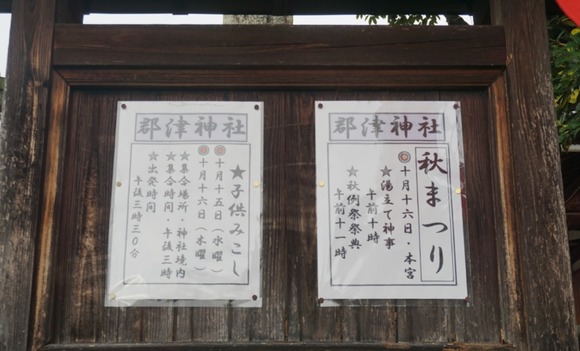 郡津神社
秋まつり
◎十月十六日・本宮
☆湯立て神事
午前十時
☆秋例祭祭典
午前十一時
郡津神社
★子供みこし
◎十月十五日（水曜）
◎十月十六日（木曜）
☆集合場所・神社境内
☆集合時間・午後三時
☆出発時間
午後三時三0分